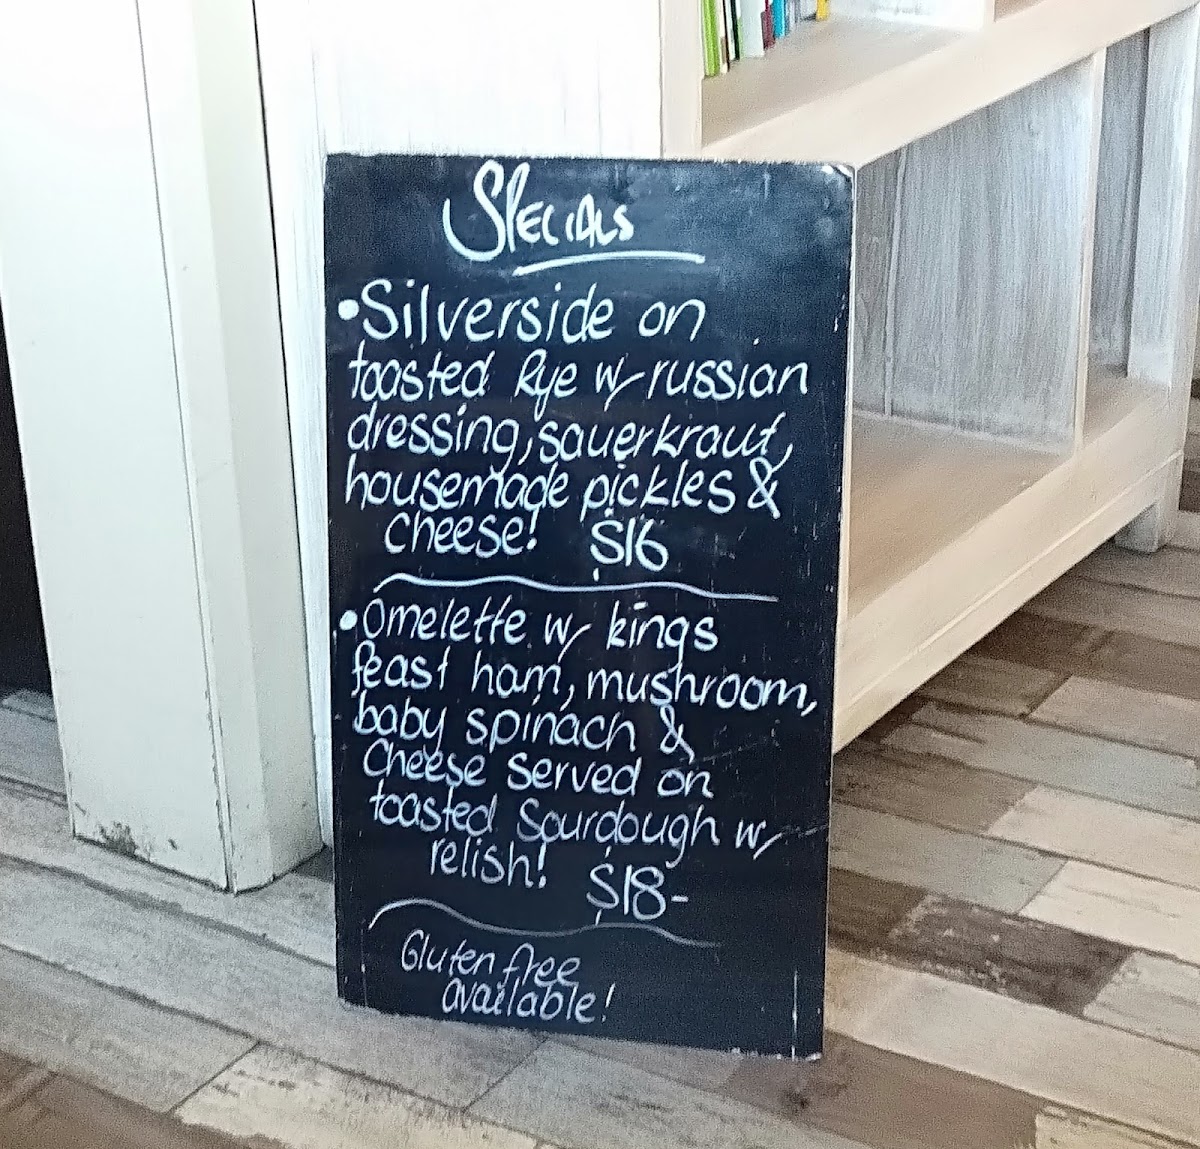 Specials
•Silverside on
toasted Rye w/ russian
dressing, sauerkraut,
housemade pickles &
Cheese! $16
•Omelette w/ kings
feast ham, mushroom,
baby spinach &
Cheese served on
toasted Sourdough w/
relish! $18-
Gluten free
available!